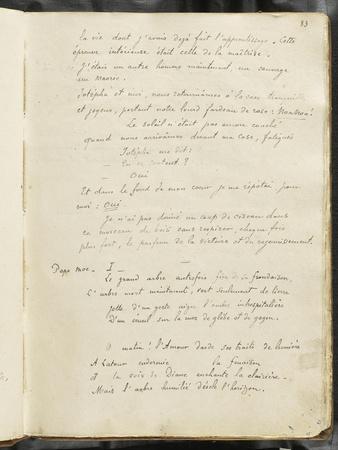 83
la vie dont j'avais déjà fait l'apprentissage. Cette
épreuve intérieure était celle de la maîtrise.
J'étais un autre homme maintenant, un sauvage
un Maorie.
Jotépha et moi, nous retournâmes à la case tranquilles
et joyeux, portant notre lourd fardeau de rose: Noanoa!
Le soleil n'était pas encore couché
quand nous arrivâmes devant ma case, fatigués
Jotépha me dit:
— Tu es content?
— Oui
Et dans le fond de mon coeur je me répétai pour
moi: Oui.
Je n'ai pas donné un coup de ciseau dans
ce morceau de bois sans respirer, chaque fois
plus fort, le parfum de la victoire et du rajeunissement.
Pape moe. — I —
Le grand arbre autrefois fier de sa frondaison
L'arbre mort maintenant, vert seulement de lierre
Jette d'un geste aigre l'ombre inhospitalière
D'un
O matin! l'Amour darde ses traits de lumière
A Latour endormie la
et la voix de Diane enchante la clairière.
Mais l'arbre humilié désole l'horizon.